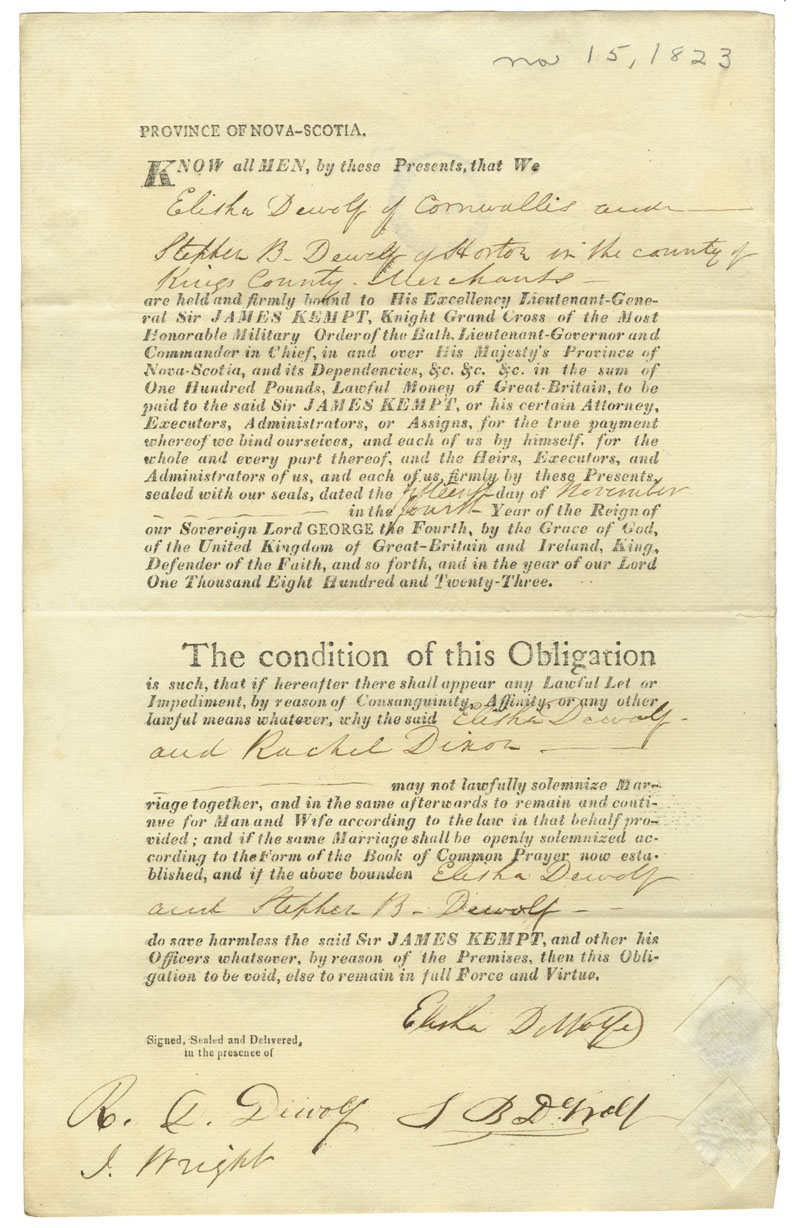 no 15, 1823
PROVINCE OF NOVA-SCOTIA.
KNOW all MEN, by these Presents, that We
Elisha Dewolf of Cornwallis and
Stephen B- Dewolf of Horton in the county of
Kings County - Merchants -
are held and firmly bound to His Excellency Lieutenant-Gene-
ral Sir JAMES KEMPT, Knight Grand Cross of the Most
Honorable Military Order of the Bath, Lieutenant-Governor and
Commander in Chief, in and over His Majesty's Province of
Nova-Scotia, and its Dependencies, &c. &c. &c. in the sum of
One Hundred Pounds, Lawful Money of Great-Britain, to be
paid to the said Sir JAMES KEMPT, or his certain Attorney,
Executors, Administrators, or Assigns, for the true payment
whereof we bind ourselves, and each of us by himself, for the
whole and every part thereof, and the Heirs, Executors, and
Administrators of us, and each of us, firmly by these Presents,
sealed with our seals, dated the fifteenth day of November
in the fourth Year of the Reign of
our Sovereign Lord GEORGE the Fourth, by the Grace of God,
of the United Kingdom of Great-Britain and Ireland, King,
Defender of the Faith, and so forth, and in the year of our Lord
One Thousand Eight Hundred and Twenty-Three.
The condition of this Obligation
is such, that if hereafter there shall appear any Lawful Let or
Impediment, by reason of Consanguinity, Affinity, or any other
lawful means whatever, why the said Elisha Dewolf -
and Rachel Dixon
may not lawfully solemnize Mar-
riage together, and in the same afterwards to remain and conti-
nue for Man and Wife according to the law in that behalf pro-
vided; and if the same Marriage shall be openly solemnized ac-
cording to the Form of the Book of Common Prayer now esta-
blished, and if the above bounden Elisha Dewolf
and Stephen B - Dewolf -
do save harmless the said Sir JAMES KEMPT, and other his
Officers whatsover, by reason of the Premises, then this Obli-
gation to be void, else to remain in full Force and Virtue.
Elisha DeWolfe
Signed, Sealed and Delivered,
in the presence of
R. Dewolf
S B DeWolf
J. Wright